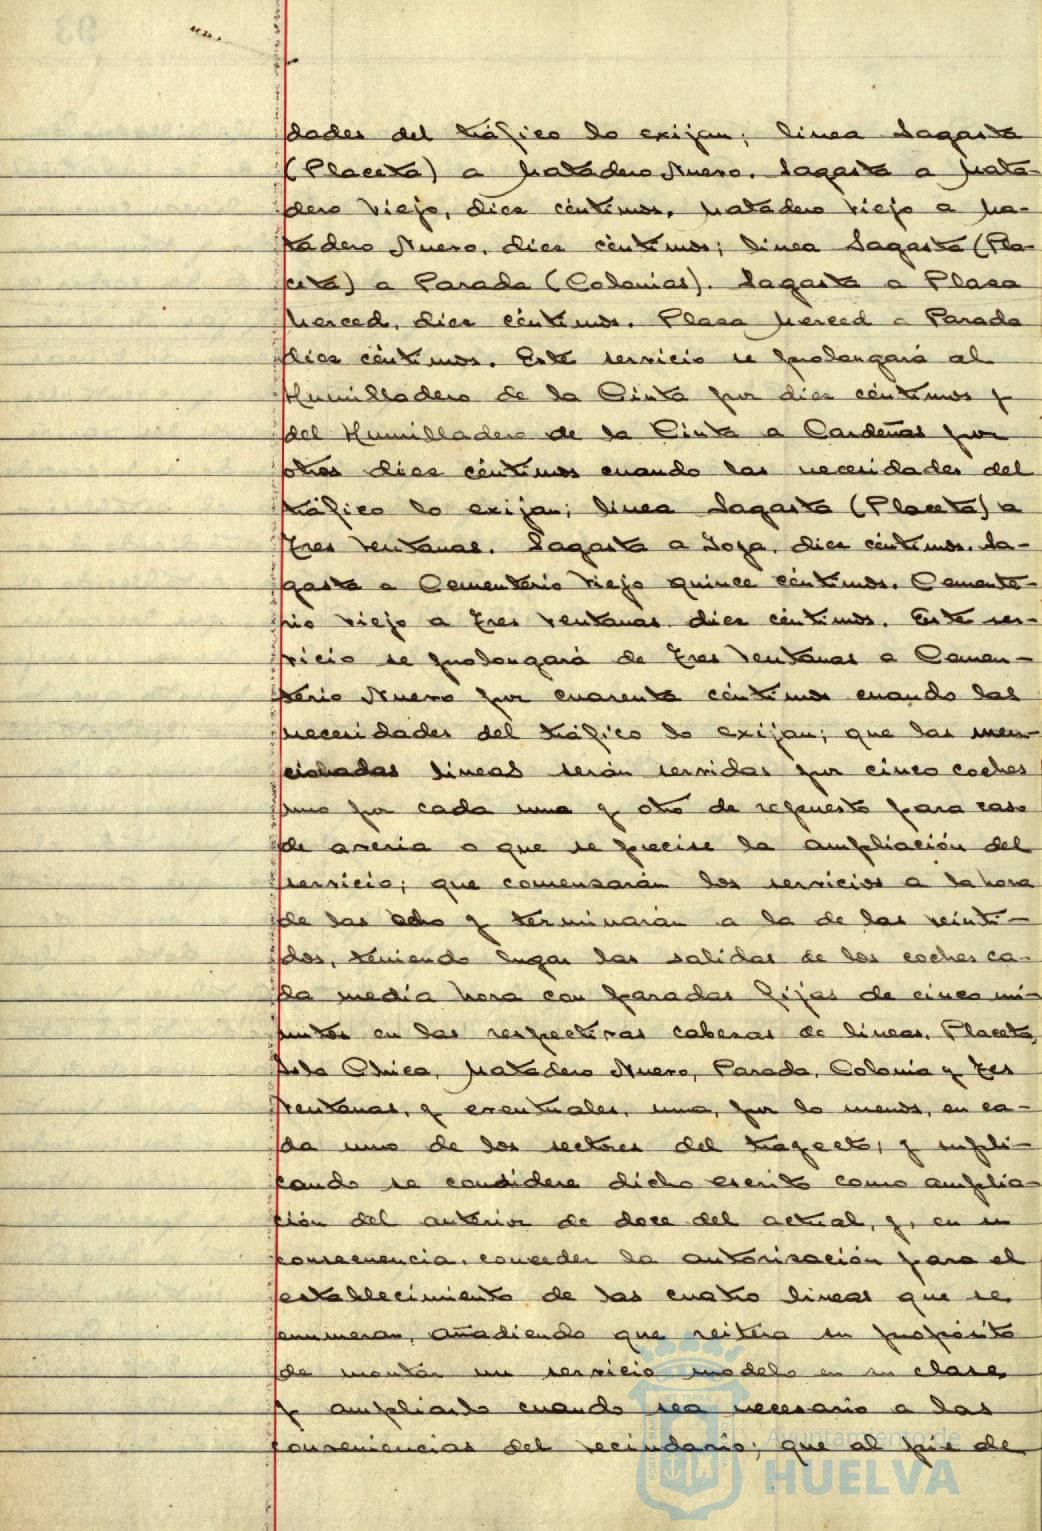 dades del tráfico lo exijan; línea Sagasta
(Placeta) a Matadero Nuevo. Sagasta a Mata-
dero Viejo, diez céntimos. Matadero Viejo a Ma-
tadero Nuevo, diez céntimos; línea Sagasta (Pla-
ceta) a Parada (Colonias). Sagasta a Plaza
Merced, diez céntimos. Plaza Merced a Parada
diez céntimos. Este servicio se prolongará al
Humilladero de la Cinta por diez céntimos y
del Humilladero de la Cinta a Cardeñas por
otros diez céntimos cuando las necesidades del
tráfico lo exijan; línea Sagasta (Placeta) a
Tres Ventanas. Sagasta a Soza, diez céntimos. Sa-
gasta a Cementerio Viejo quince céntimos. Cemente-
rio Viejo a Tres Ventanas diez céntimos. Este ser-
vicio se prolongará de Tres Ventanas a Cemen-
terio Nuevo por cuarenta céntimos cuando las
necesidades del tráfico lo exijan; que las men-
cionadas líneas serán servidas por cinco coches
uno por cada una y otro de repuesto para caso
de avería o que se precise la ampliación del
servicio; que comenzarán los servicios a la hora
de las ocho y terminarán a la de las veinti-
dos, teniendo lugar las salidas de los coches ca-
da media hora con paradas fijas de cinco mi-
nutos en las respectivas cabezas de líneas, Placeta,
Isla Chica, Matadero Nuevo, Parada, Colonia y Tres
Ventanas, y eventuales, una, por lo menos, en ca-
da uno de los sectores del trayecto; y supli-
cando se considere dicho escrito como amplia-
ción del anterior de doce del actual, y, en su
consecuencia, conceder la autorización para el
establecimiento de las cuatro líneas que se
enumeran, añadiendo que reitera su propósito
de montar un servicio modelo en su clase,
y ampliarlo cuando sea necesario a las
conveniencias del vecindario; que al pie de
Ayuntamiento de
HUELVA